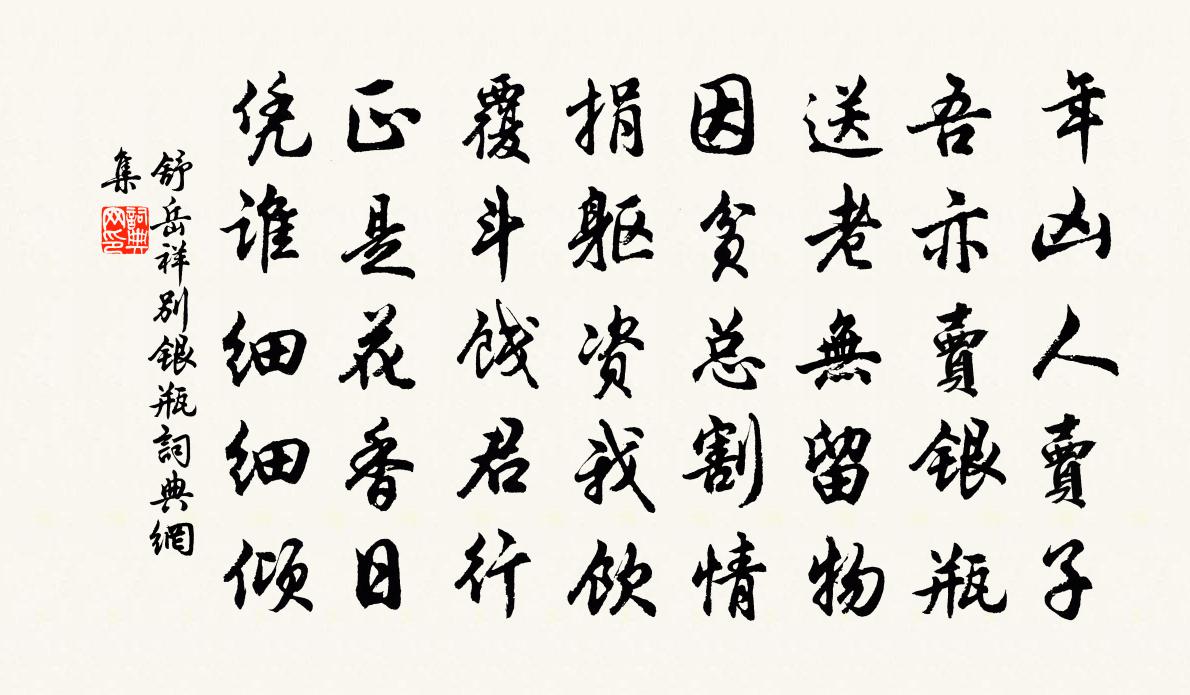 年凶人賣子
吾亦賣銀瓶
送老無留物
因貧总割情
捐軀资我飲
覆斗餞君行
正是花香日
凭谁细细倾
舒岳祥別銀瓶詞典網
集
詞典網印